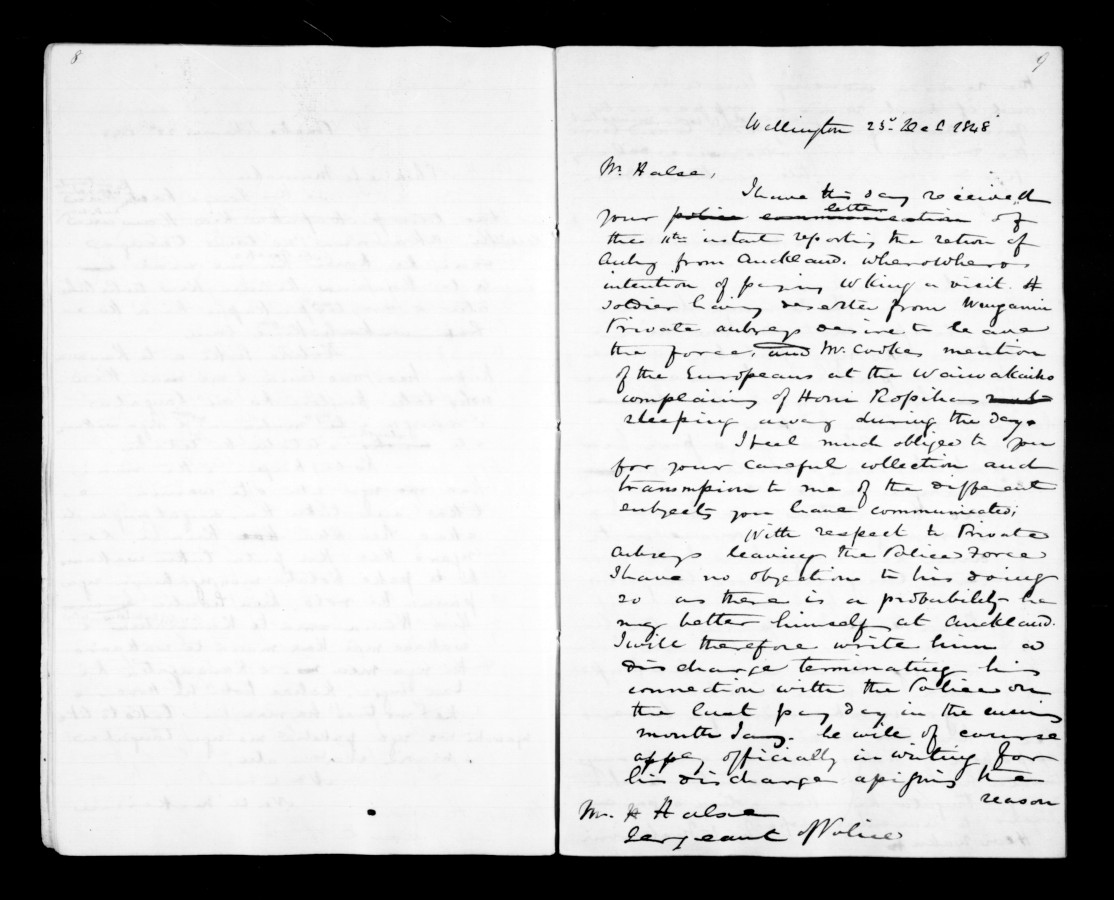 8
9
Wellington 25 Dec 1848
Mr Halse,
I have this day received
your police communication letter of
the 11th instant reporting the return of
Aubrey from Auckland.
intention of paying W King a visit. A
soldier having deserted from Wanganui
Private Aubreys desire to leave
the force, and Mr. Cooke's mention
of the Europeans at the Waiwakaiho
complaining of Honi Ropihas
sleeping away during the day.
I feel much obliged to you
for your careful collection and
transmission to me of the different
subjects you have communicated;
With respect to Private
Aubreys leaving the Police Force
I have no objection to his doing
so as there is a probability he
may better himself at Auckland.
I will therefore write him a
discharge terminating his
connection with the Police on
the last pay day in the ensuing
month Jany. he will of course
apply officially in writing for
his discharge assigning the
reason
Mr. H Halse
Sergeant of Police